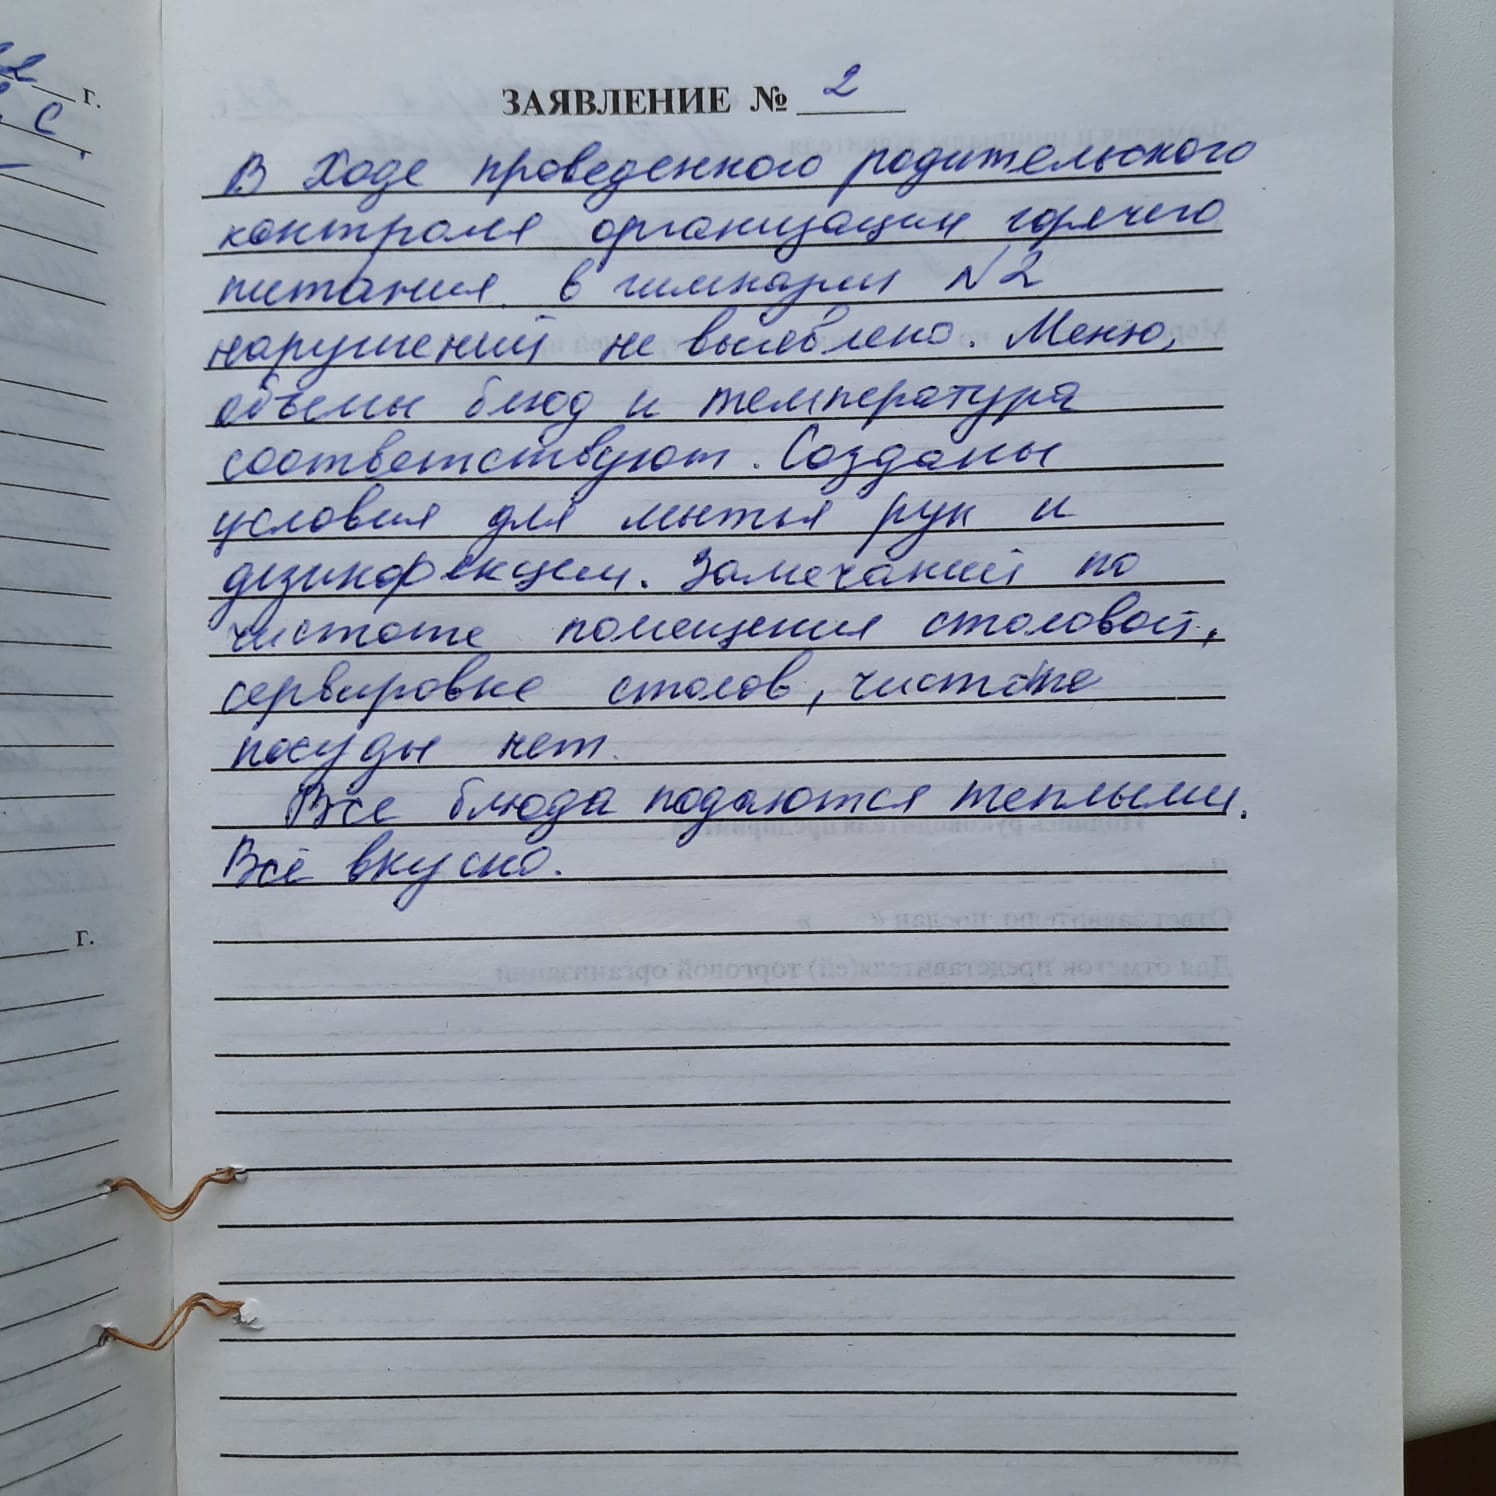 ЗАЯВЛЕНИЕ № 2
В ходе проведенного родительского
контроля организации горячего
питания в гимназии №2
нарушений не выявлено. Меню,
объемы блюд и температура
соответствуют. Созданы
условия для мытья рук и
дезинфекции. Замечаний по
чистоте помещения столовой,
сервировке столов, чистоте
посуды нет.
Все блюда подаются теплыми.
Всё вкусно.
г.
г.